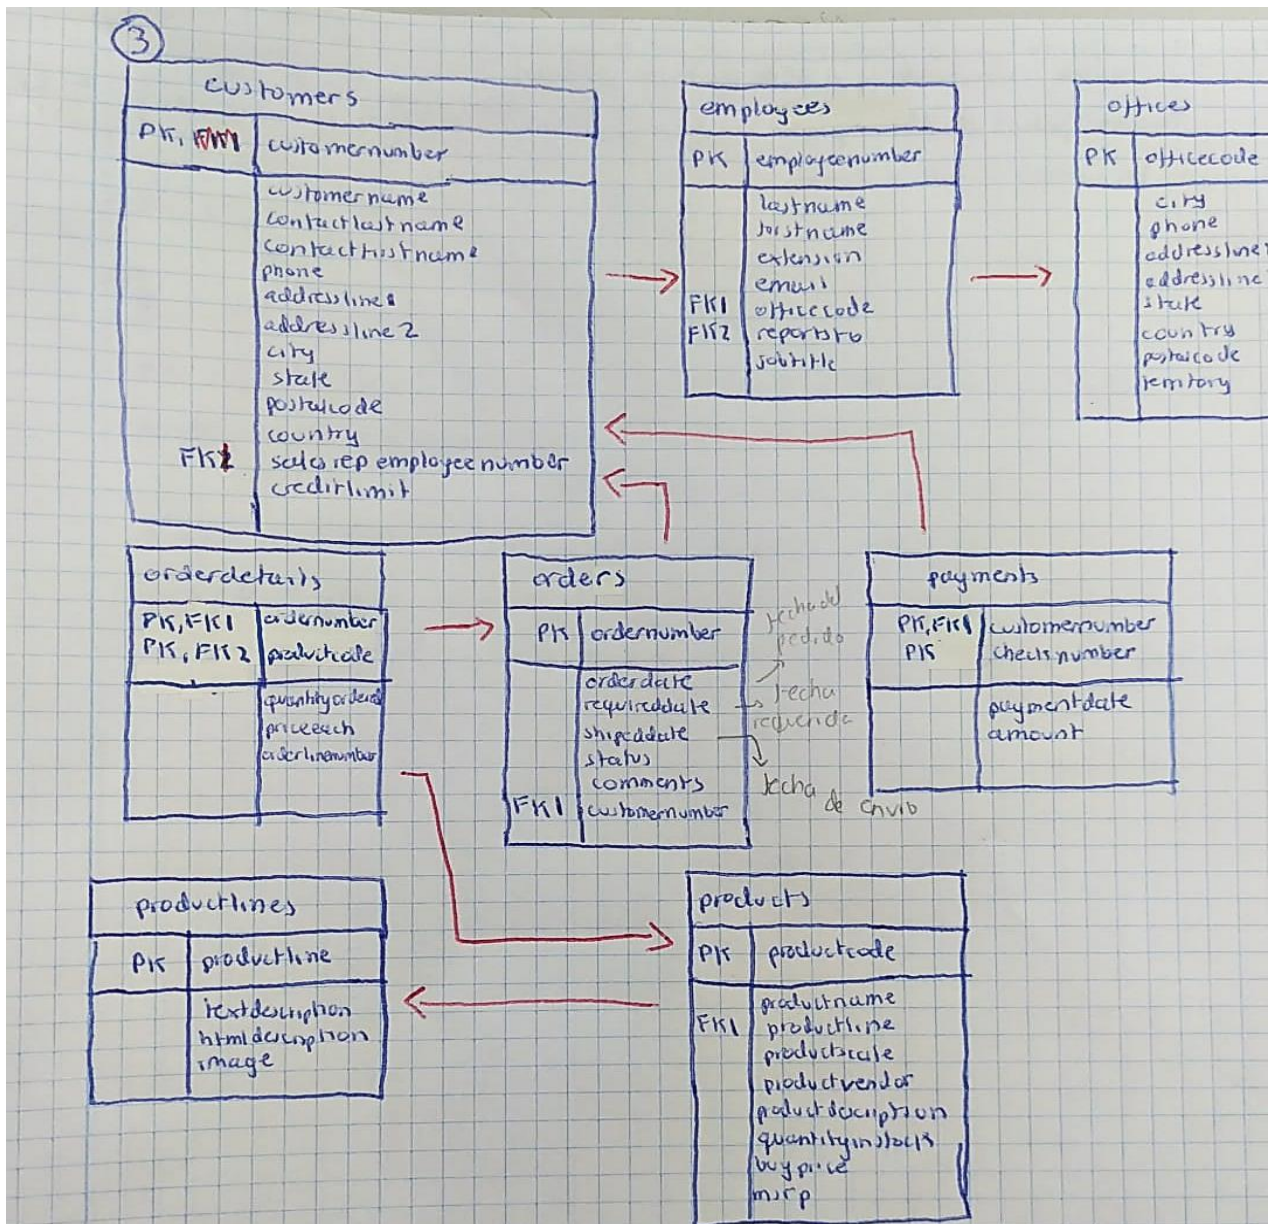 3
customers
PK, customernumber
customername
contactlastname
contactfirstname
phone
addressline1
addressline2
city
state
postalcode
country
FK1 salesrepemployeenumber
creditlimit
employees
PK employeenumber
lastname
firstname
extension
email
FK1 officecode
FK2 reportsto
jobtitle
offices
PK officecode
city
phone
addressline1
addressline
state
country
postalcode
territory
orderdetails
PK, FK1 ordernumber
PK, FK2 productcode
quantityordered
priceeach
orderlinenumber
orders
PK ordernumber
orderdate
requireddate
shipeddate
status
comments
FK1 customernumber
fecha del
pedido
fecha
requerida
fecha
de envío
payments
PK, FK1 customernumber
PK checknumber
paymentdate
amount
productlines
PK productline
textdescription
htmldescription
image
products
PK productcode
productname
FK1 productline
productscale
productvendor
productdescription
quantityinstock
buyprice
msrp